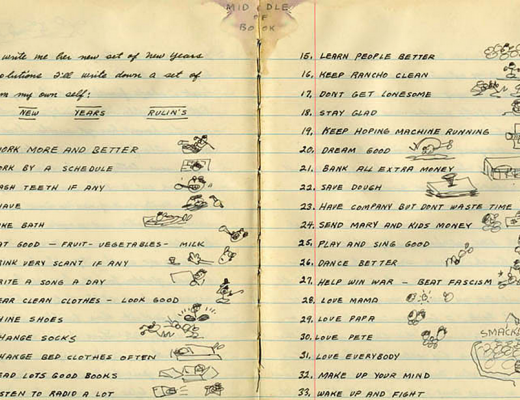 MIDDLE
OF
BOOK
write me her new set of New Years
olutions I'll write down a set of
m my own self:
NEW YEARS RULIN'S
ORK MORE AND BETTER
ORK BY A SCHEDULE
ASH TEETH IF ANY
HAVE
AKE BATH
AT GOOD — FRUIT - VEGETABLES - MILK
RINK VERY SCANT IF ANY
RITE A SONG A DAY
EAR CLEAN CLOTHES — LOOK GOOD
HINE SHOES
HANGE SOCKS
HANGE BED CLOTHES OFTEN
EAD LOTS GOOD BOOKS
ISTEN TO RADIO A LOT
15. LEARN PEOPLE BETTER
16. KEEP RANCHO CLEAN
17. DONT GET LONESOME
18. STAY GLAD
19. KEEP HOPING MACHINE RUNNING
20. DREAM GOOD
21. BANK ALL EXTRA MONEY
22. SAVE DOUGH
23. HAVE COMPANY BUT DONT WASTE TIME
24. SEND MARY AND KIDS MONEY
25. PLAY AND SING GOOD
26. DANCE BETTER
27. HELP WIN WAR - BEAT FASCISM
28. LOVE MAMA
29. LOVE PAPA
30. LOVE PETE
SMACK
31. LOVE EVERYBODY
32. MAKE UP YOUR MIND
33. WAKE UP AND FIGHT